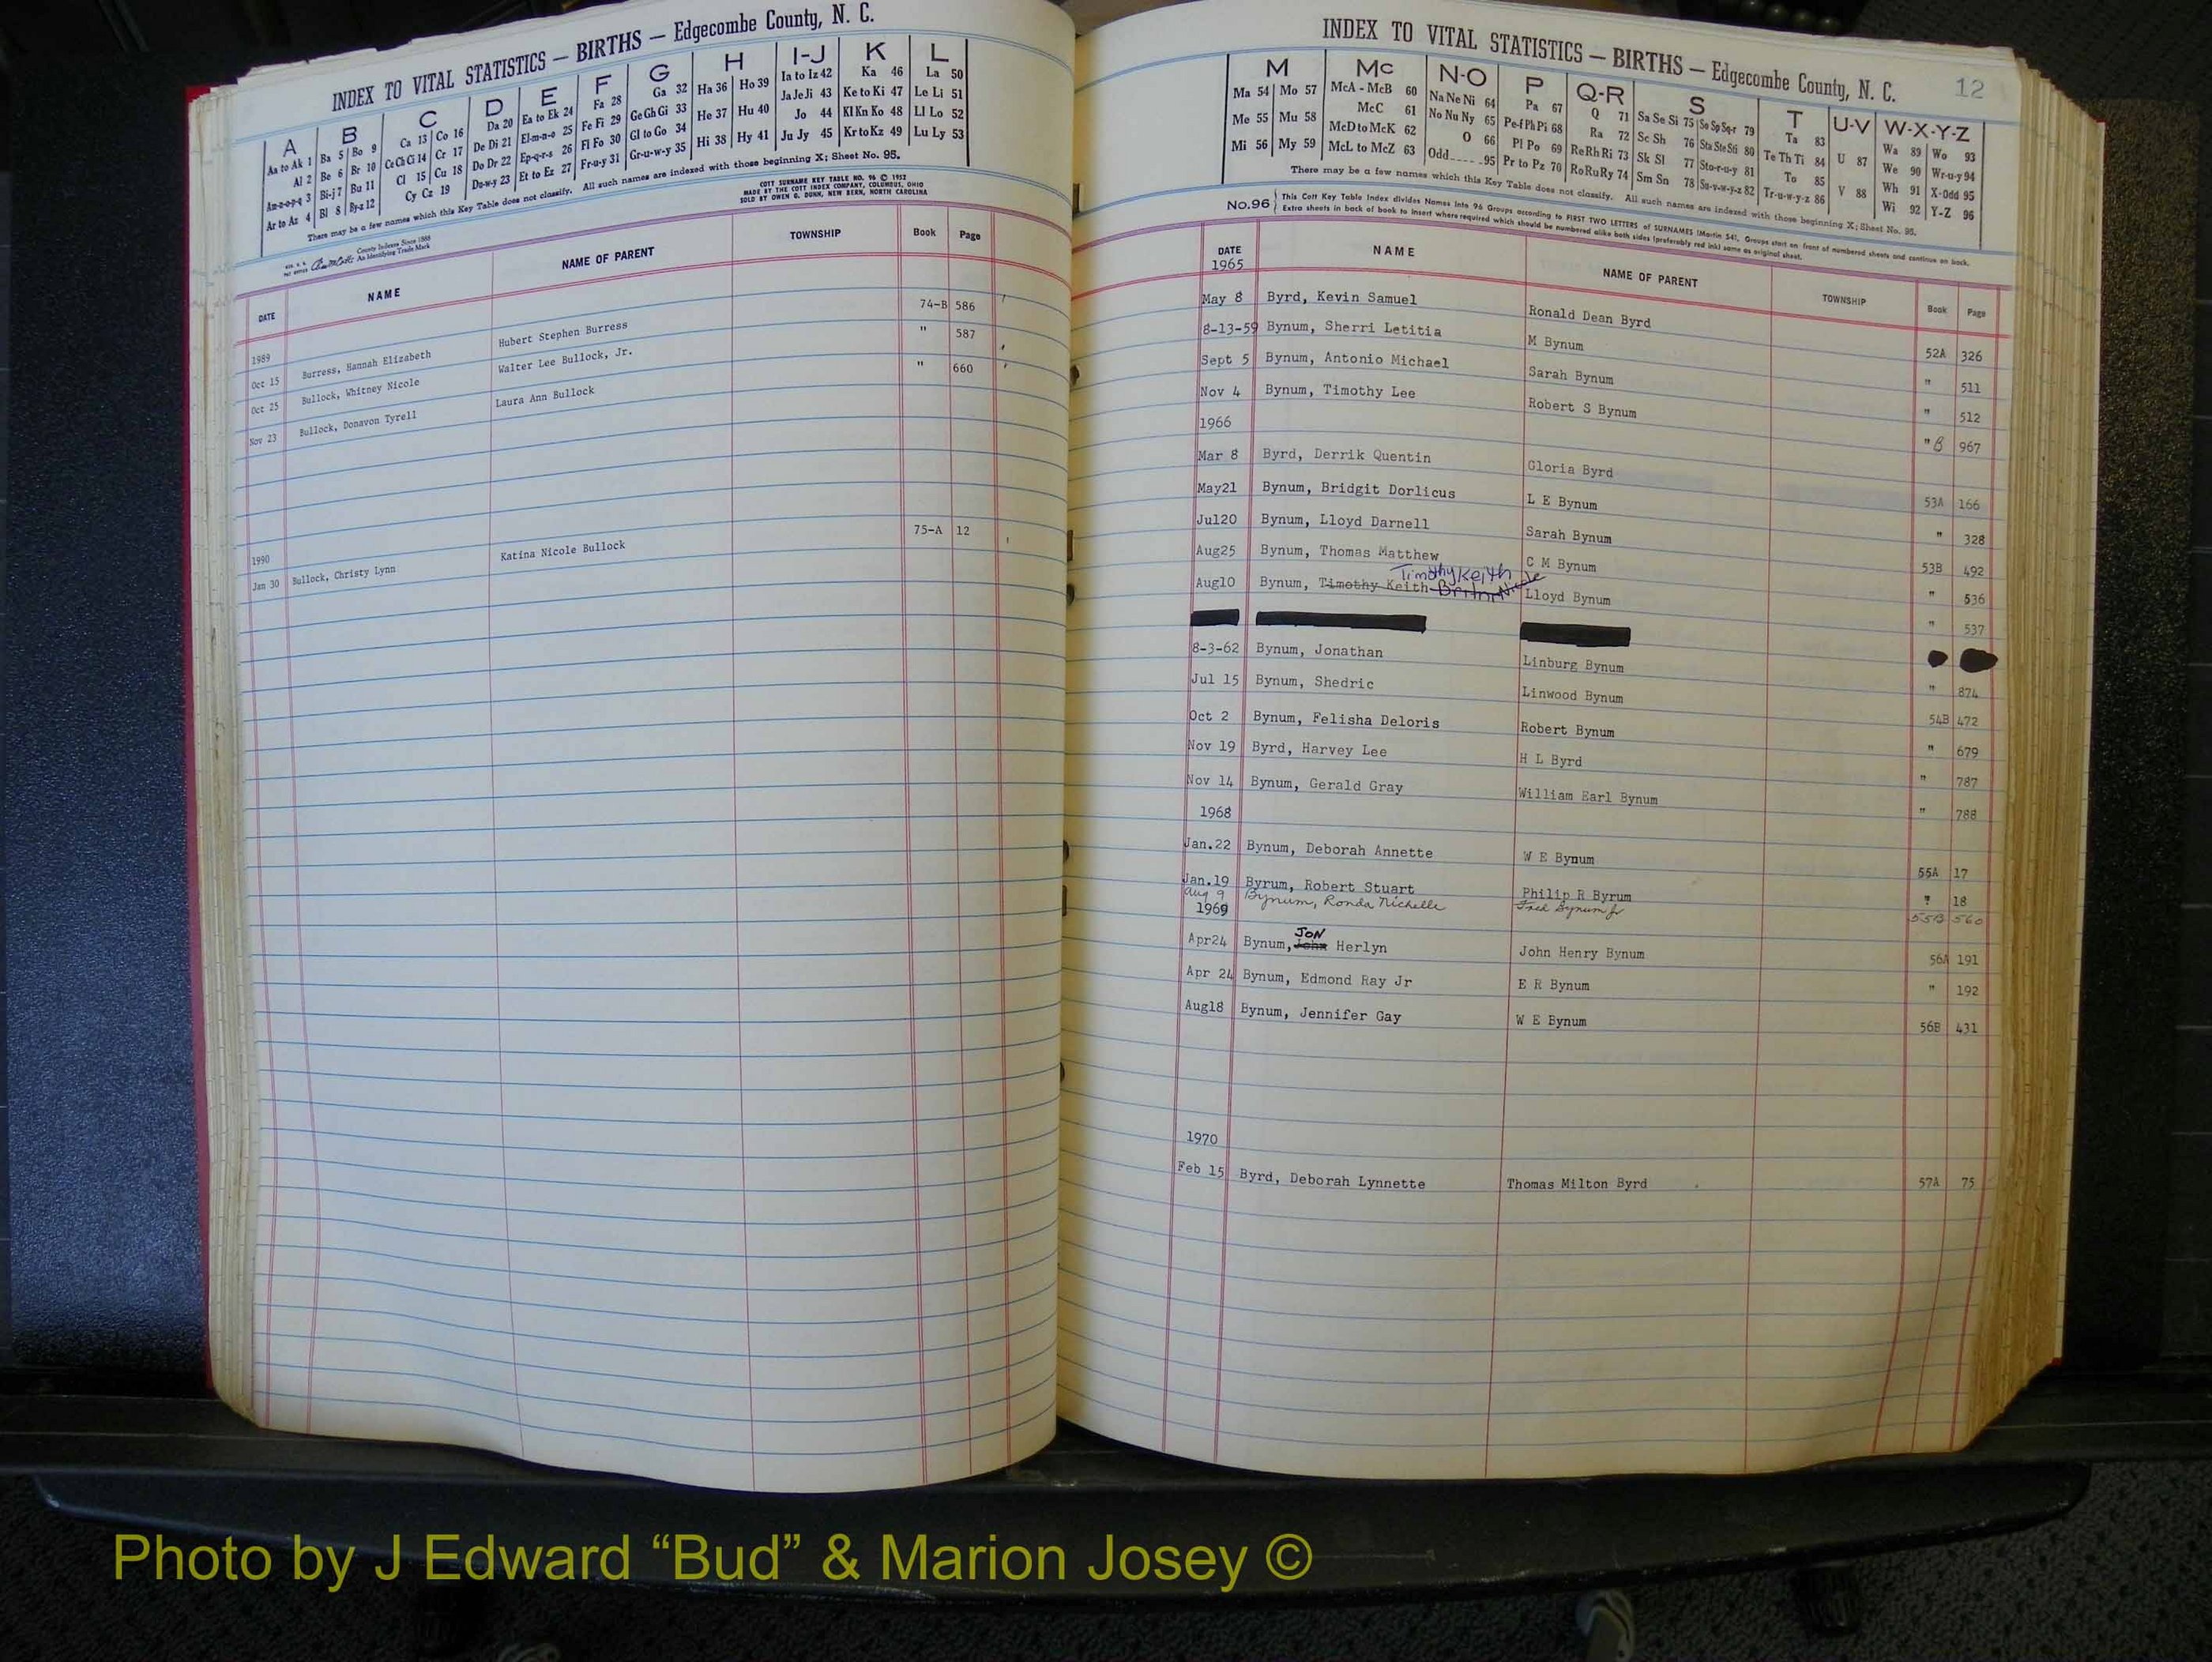 INDEX TO VITAL STATISTICS — BIRTHS — Edgecombe County, N. C.
A B C D E F G H I-J K L
Aa to Ak 1 Ba 5 Bo 9 Ca 13 Co 16 Da 20 Ea to Ek 24 Fa 28 Ga 32 Ha 36 Ho 39 Ia to Iz 42 Ka 46 La 50
Al 2 Be 6 Br 10 Ce Ch Ci 14 Cr 17 De Di 21 El-m-n-o 25 Fe Fi 29 Ge Gh Gi 33 He 37 Hu 40 Ja Je Ji 43 Ke to Ki 47 Le Li 51
Am-n-o-p-q 3 Bi-j 7 Bu 11 Cl 15 Cu 18 Do Dr 22 Ep-q-r-s 26 Fl Fo 30 Gl to Go 34 Hi 38 Hy 41 Jo 44 Kl Kn Ko 48 Ll Lo 52
Ar to Az 4 Bl 8 By-z 12 Cy Cz 19 Du-w-y 23 Et to Ez 27 Fr-u-y 31 Gr-u-w-y 35 Ju Jy 45 Kr to Kz 49 Lu Ly 53
There may be a few names which this Key Table does not classify. All such names are indexed with those beginning X; Sheet No. 95.
COTT SURNAME KEY TABLE NO. 96 © 1952
MADE BY THE COTT INDEX COMPANY, COLUMBUS, OHIO
SOLD BY OWEN G. DUNN, NEW BERN, NORTH CAROLINA
County Indexes Since 1888
An Identifying Trade Mark
DATE NAME NAME OF PARENT TOWNSHIP Book Page
1989
Oct 15 Burress, Hannah Elizabeth Hubert Stephen Burress 74-B 586
Oct 25 Bullock, Whitney Nicole Walter Lee Bullock, Jr. " 587
Nov 23 Bullock, Donavon Tyrell Laura Ann Bullock " 660
1990
Jan 30 Bullock, Christy Lynn Katina Nicole Bullock 75-A 12
INDEX TO VITAL STATISTICS — BIRTHS — Edgecombe County, N. C. 12
M Mc N-O P Q-R S T U-V W-X-Y-Z
Ma 54 Mo 57 McA - McB 60 Na Ne Ni 64 Pa 67 Q 71 Sa Se Si 75 So Sp Sq-r 79 Ta 83 U 87 Wa 89 Wo 93
Me 55 Mu 58 McC 61 No Nu Ny 65 Pe-f Ph Pi 68 Ra 72 Sc Sh 76 Sta Ste Sti 80 Te Th Ti 84 V 88 We 90 Wr-u-y 94
Mi 56 My 59 McD to McK 62 O 66 Pl Po 69 Re Rh Ri 73 Sk Sl 77 Sto-r-u-y 81 To 85 Wh 91 X-Odd 95
McL to McZ 63 Odd 95 Pr to Pz 70 Ro Ru Ry 74 Sm Sn 78 Su-v-w-y-z 82 Tr-u-w-y-z 86 Wi 92 Y-Z 96
There may be a few names which this Key Table does not classify. All such names are indexed with those beginning X; Sheet No. 95.
No.96 This Cott Key Table Index divides Names into 96 Groups according to FIRST TWO LETTERS of SURNAMES (Martin 54), Groups start on front of numbered sheets and continue on back.
Extra sheets in back of book to insert where required which should be numbered alike both sides (preferably red ink) same as original sheet.
DATE NAME NAME OF PARENT TOWNSHIP Book Page
1965
May 8 Byrd, Kevin Samuel Ronald Dean Byrd 52A 326
8-13-59 Bynum, Sherri Letitia M Bynum " 511
Sept 5 Bynum, Antonio Michael Sarah Bynum " 512
Nov 4 Bynum, Timothy Lee Robert S Bynum " B 967
1966
Mar 8 Byrd, Derrik Quentin Gloria Byrd 53A 166
May21 Bynum, Bridgit Dorlicus L E Bynum " 328
Jul20 Bynum, Lloyd Darnell Sarah Bynum 53B 492
Aug25 Bynum, Thomas Matthew C M Bynum " 536
Timothy Keith
Aug10 Bynum, Timothy Keith Lloyd Bynum " 537
8-3-62 Bynum, Jonathan Linburg Bynum " 874
Jul 15 Bynum, Shedric Linwood Bynum 54B 472
Oct 2 Bynum, Felisha Deloris Robert Bynum " 679
Nov 19 Byrd, Harvey Lee H L Byrd " 787
Nov 14 Bynum, Gerald Gray William Earl Bynum " 788
1968
Jan.22 Bynum, Deborah Annette W E Bynum 55A 17
Jan.19 Byrum, Robert Stuart Philip R Byrum " 18
Aug 9 Bynum, Ronda Nichelle Fred Bynum Jr 55B 560
1969
JON
Apr24 Bynum, John Herlyn John Henry Bynum 56A 191
Apr 24 Bynum, Edmond Ray Jr E R Bynum " 192
Aug18 Bynum, Jennifer Gay W E Bynum 56B 431
1970
Feb 15 Byrd, Deborah Lynnette Thomas Milton Byrd 57A 75
Photo by J Edward “Bud” & Marion Josey ©